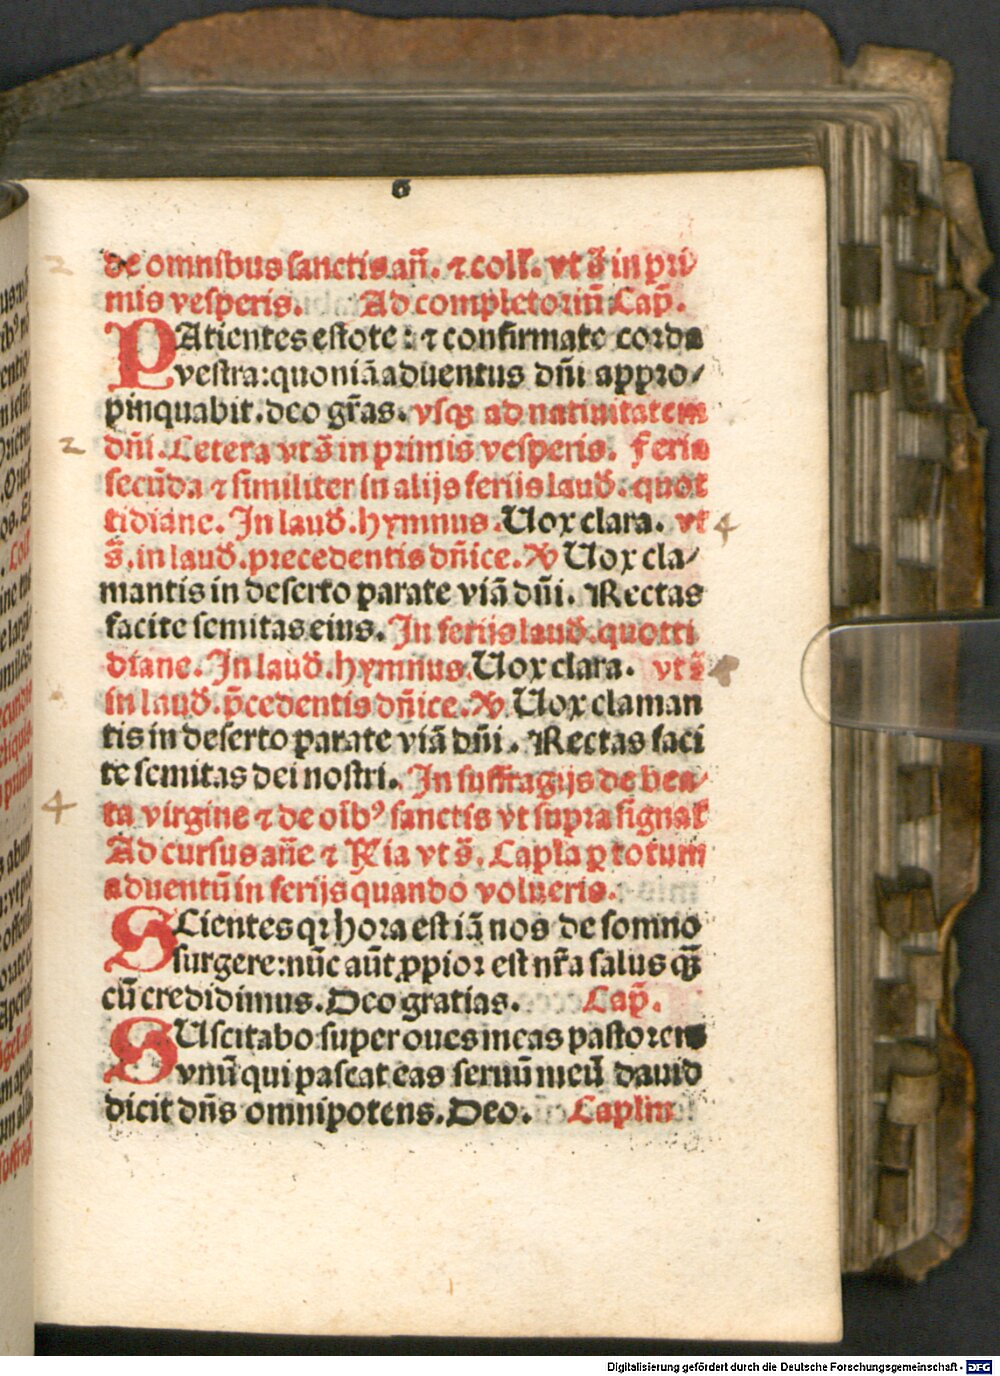 6
de omnibus sanctis añ. ⁊ coll̄. vt s̄ in pri
mis vesperis. Ad completoriũ Cap̃.
PAtientes estote: ⁊ confirmate corda
vestra: quoniã aduentus dñi appro/
pinquabit. deo gr̃as. vsqꝫ ad natiuitatem
dñi. Cetera vt s̄ in primis vesperis. Feria
secũda ⁊ similiter in alijs ferijs laud̃. quot
tidiane. In laud̃. hymnus. Uox clara. vt
s̄. in laud̃. precedentis dñice. ℣ Uox cla/
mantis in deserto parate viã dñi. Rectas
facite semitas eius. In ferijs laud̃. quotti
diane. In laud̃. hymnus. Uox clara. vt s̄
in laud̃. p̃cedentis dñice. ℣. Uox claman
tis in deserto parate viã dñi. Rectas faci
te semitas dei nostri. In suffragijs de bea/
ta virgine ⁊ de oĩbꝰ sanctis vt supra signat̃
Ad cursus añe ⁊ ℟ia vt s̄. Capl̃a ꝑ totum
aduentũ in ferijs quando volueris.
SCientes qꝛ hora est iã nos de somno
surgere: nũc aũt ꝓpior est nr̃a salus qꝫ̃
cũ credidimus. Deo gratias. Cap̃.
SUscitabo super oues meas pastorem
vnũ qui pascat eas seruũ meũ dauid
dicit dñs omnipotens. Deo. Caplm
2
2
4
4
Digitalisierung gefördert durch die Deutsche Forschungsgemeinschaft - DFG